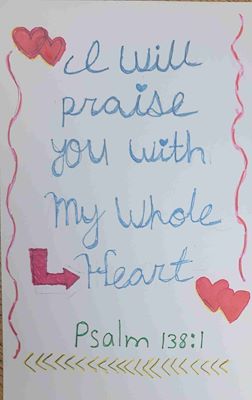 I will
praise
you with
My Whole
Heart
Psalm 138:1